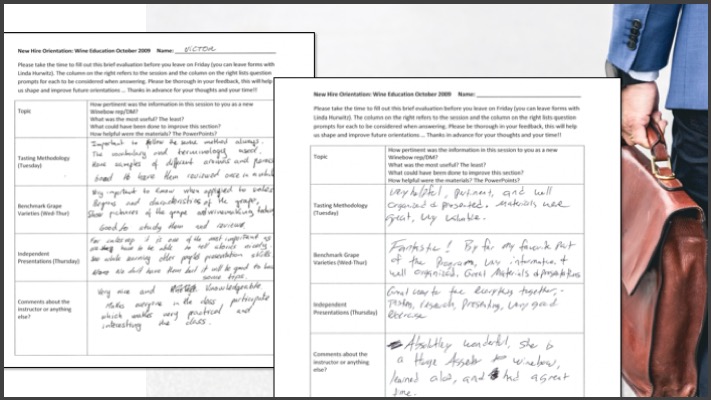 New Hire Orientation: Wine Education October 2009 Name: VICTOR
Please take the time to fill out this brief evaluation before you leave on Friday (you can leave forms with
Linda Hurwitz). The column on the right refers to the session and the column on the right lists question
prompts for each to be considered when answering. Please be thorough in your feedback, this will help
us shape and improve future orientations ... Thanks in advance for your thoughts and your time!!!
Topic
How pertinent was the information in this session to you as a new
Winebow rep/DM?
What was the most useful? The least?
What could have been done to improve this section?
How helpful were the materials? The PowerPoints?
Tasting Methodology
(Tuesday)
Important to follow the same method always.
The vocabulary and terminology used.
Have samples of different aromas and
to have them reviewed once in a while
Benchmark Grape
Varieties (Wed-Thur)
Very important to know when applied to sales
Regions and characteristics of the grape,
Show pictures of the grape and winemaking
Good to study them and review
Independent
Presentations (Thursday)
For sales rep it is one of the most important as
have to be able to sell wines
while other people presentation skills.
but it will be good to have
some tips.
Comments about the
instructor or anything
else?
Very nice and knowledgeable.
Makes everyone in the class participate
which makes very practical and
interesting the class.
New Hire Orientation: Wine Education October 2009 Name:
Please take the time to fill out this brief evaluation before you leave on Friday (you can leave forms with
Linda Hurwitz). The column on the right refers to the session and the column on the right lists question
prompts for each to be considered when answering. Please be thorough in your feedback, this will help
us shape and improve future orientations ... Thanks in advance for your thoughts and your time!!!
Topic
How pertinent was the information in this session to you as a new
Winebow rep/DM?
What was the most useful? The least?
What could have been done to improve this section?
How helpful were the materials? The PowerPoints?
Tasting Methodology
(Tuesday)
Very helpful, pertinent, and well
organized & presented. Materials were
great, very valuable.
Benchmark Grape
Varieties (Wed-Thur)
Fantastic! By far my favorite part
of the Program, very informative, &
well organized. Great Materials & presentations
Independent
Presentations (Thursday)
Great way to tie everything together, -
Tasting, research, Presenting, very good
exercise
Comments about the
instructor or anything
else?
Absolutley wonderful, she is
a Huge Asset to Winebow,
learned alot, and had a great
time.